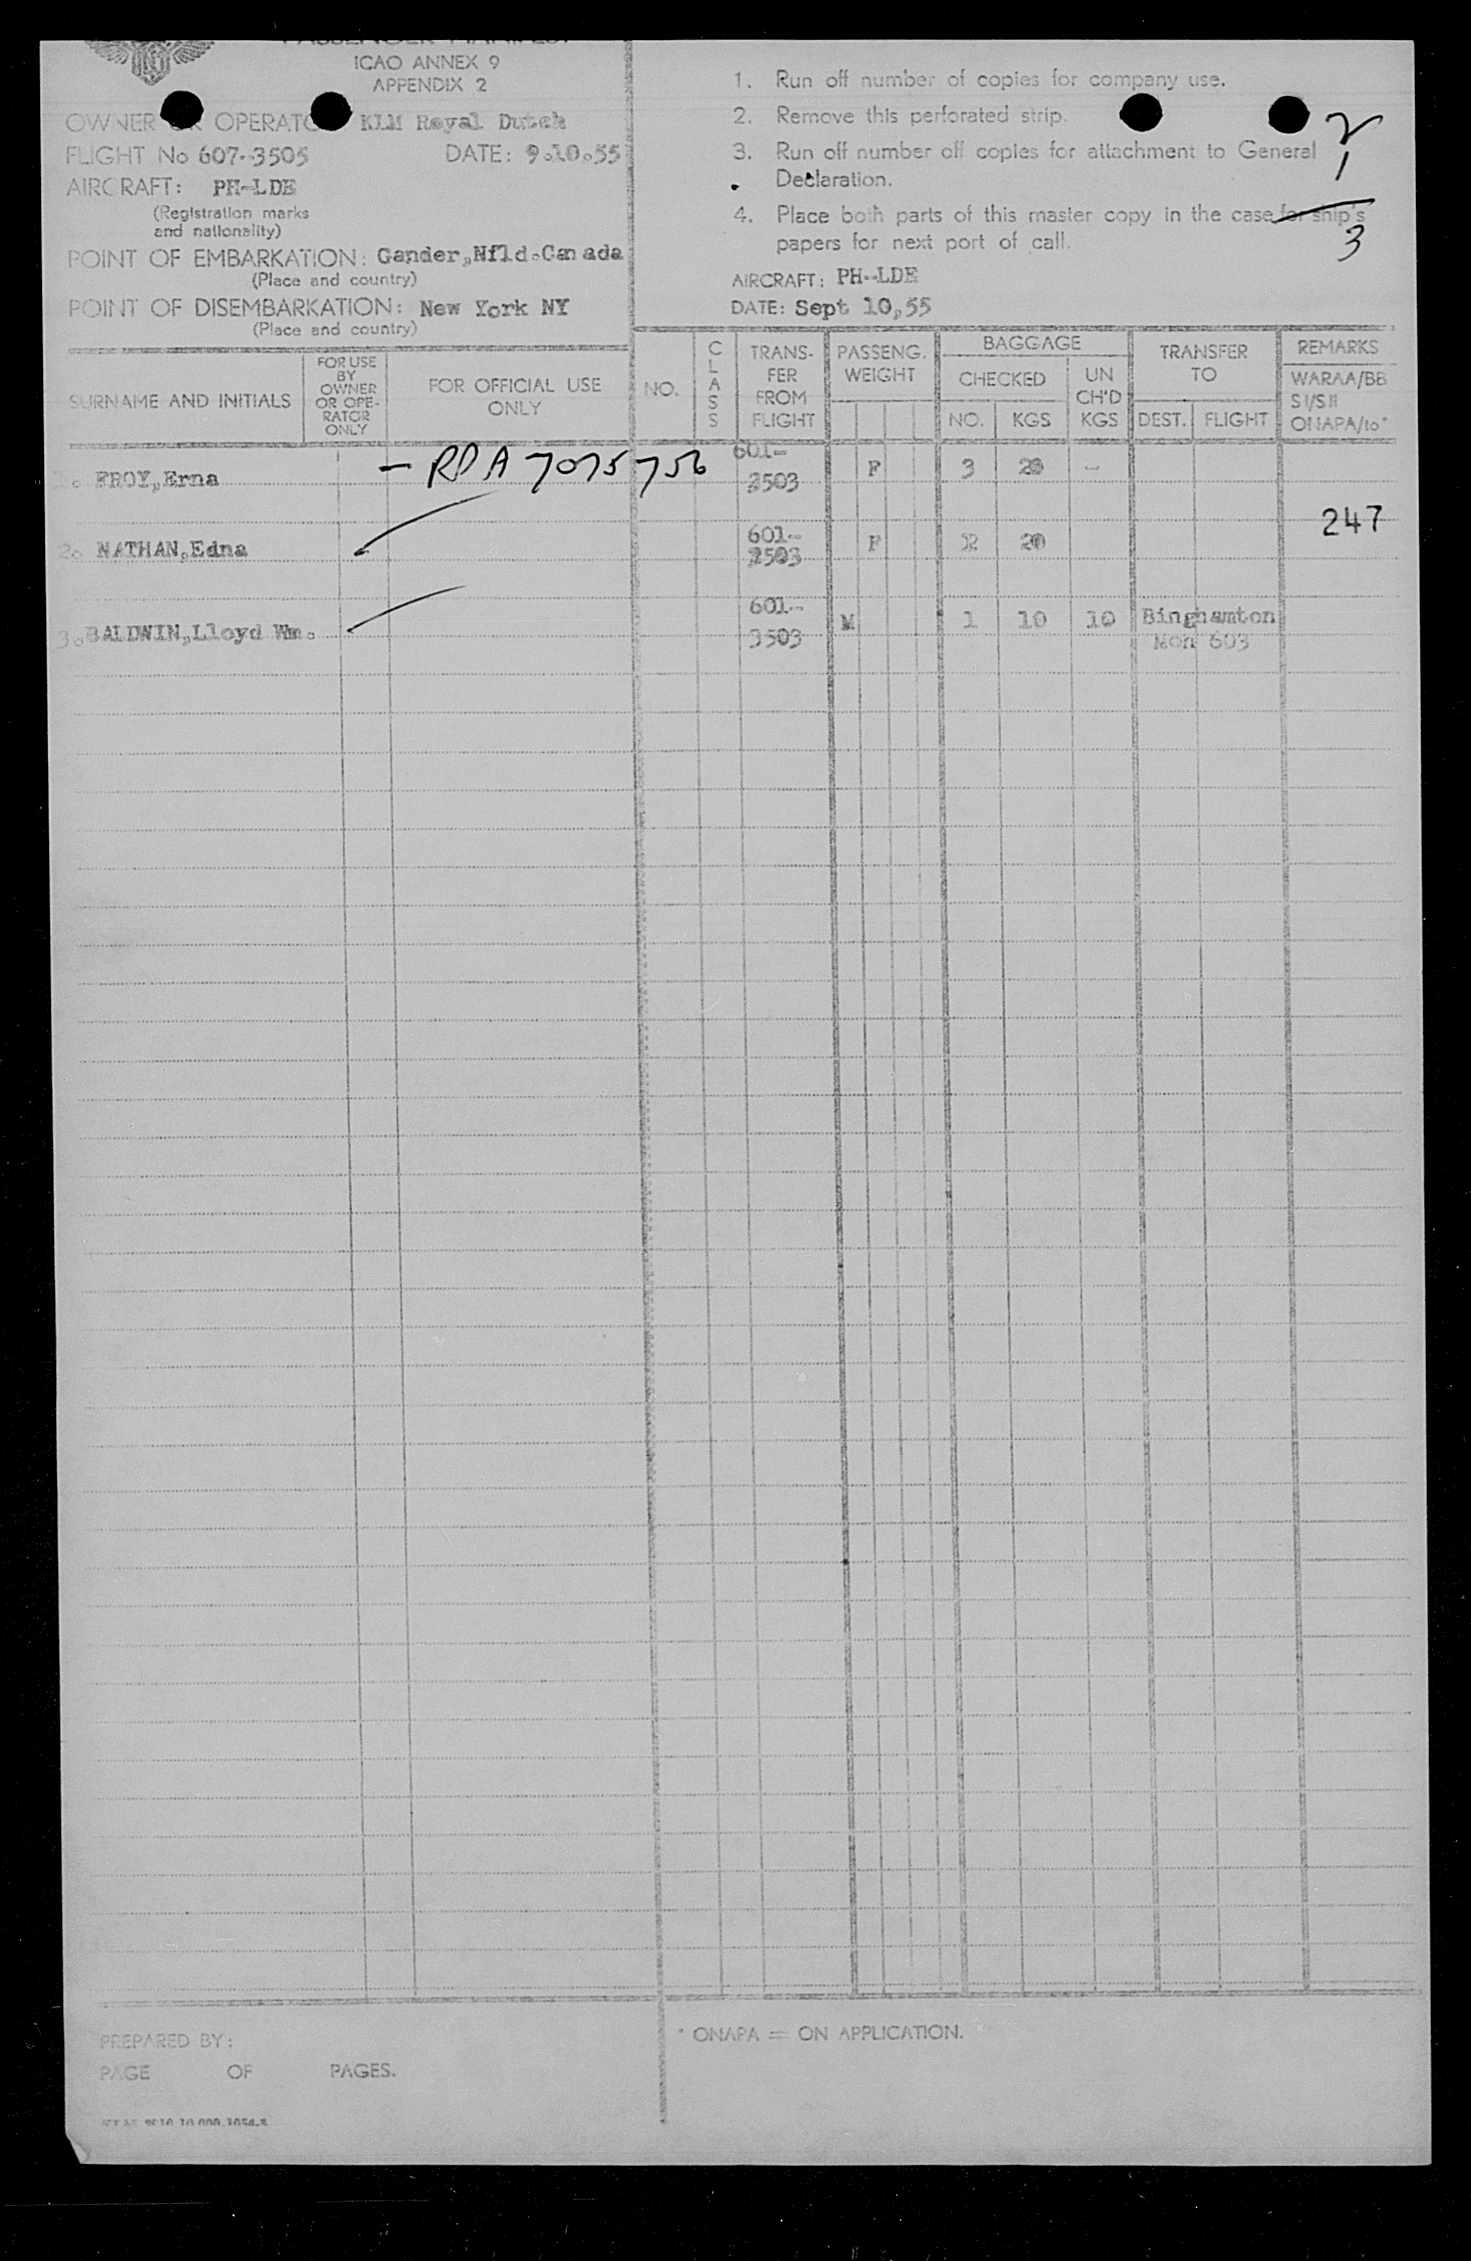 PASSENGER MANIFEST
ICAO ANNEX 9
APPENDIX 2
OWNER OR OPERATOR KLM Royal Dutch
FLIGHT No 607-3505 DATE: 9.10.55
AIRCRAFT: PH-LDE
(Registration marks
and nationality)
POINT OF EMBARKATION: Gander,Nfld.Canada
(Place and country)
POINT OF DISEMBARKATION: New York NY
(Place and country)
1. Run off number of copies for company use.
2. Remove this perforated strip.
3. Run off number off copies for attachment to General
Declaration.
4. Place both parts of this master copy in the case for ship's
papers for next port of call.
2
1
3
AIRCRAFT: PH-LDE
DATE: Sept 10,55
SURNAME AND INITIALS
FOR USE
BY
OWNER
OR OPE-
RATOR
ONLY
FOR OFFICIAL USE
ONLY
NO.
CLASS
TRANS-
FER
FROM
FLIGHT
PASSENG.
WEIGHT
BAGGAGE
CHECKED
NO. KGS
UN
CH'D
KGS
TRANSFER
TO
DEST. FLIGHT
REMARKS
WARAA/BB
SI/SII
ONAPA/to*
1. FROY,Erna - RPA 7075756 601-3503 F 3 20 -
247
2. NATHAN,Edna 601-3503 F 2 20
3. BALDWIN,Lloyd Wm. 601-3503 M 1 10 10 Binghamton
Moh 603
PREPARED BY:
PAGE OF PAGES.
* ONAPA = ON APPLICATION.